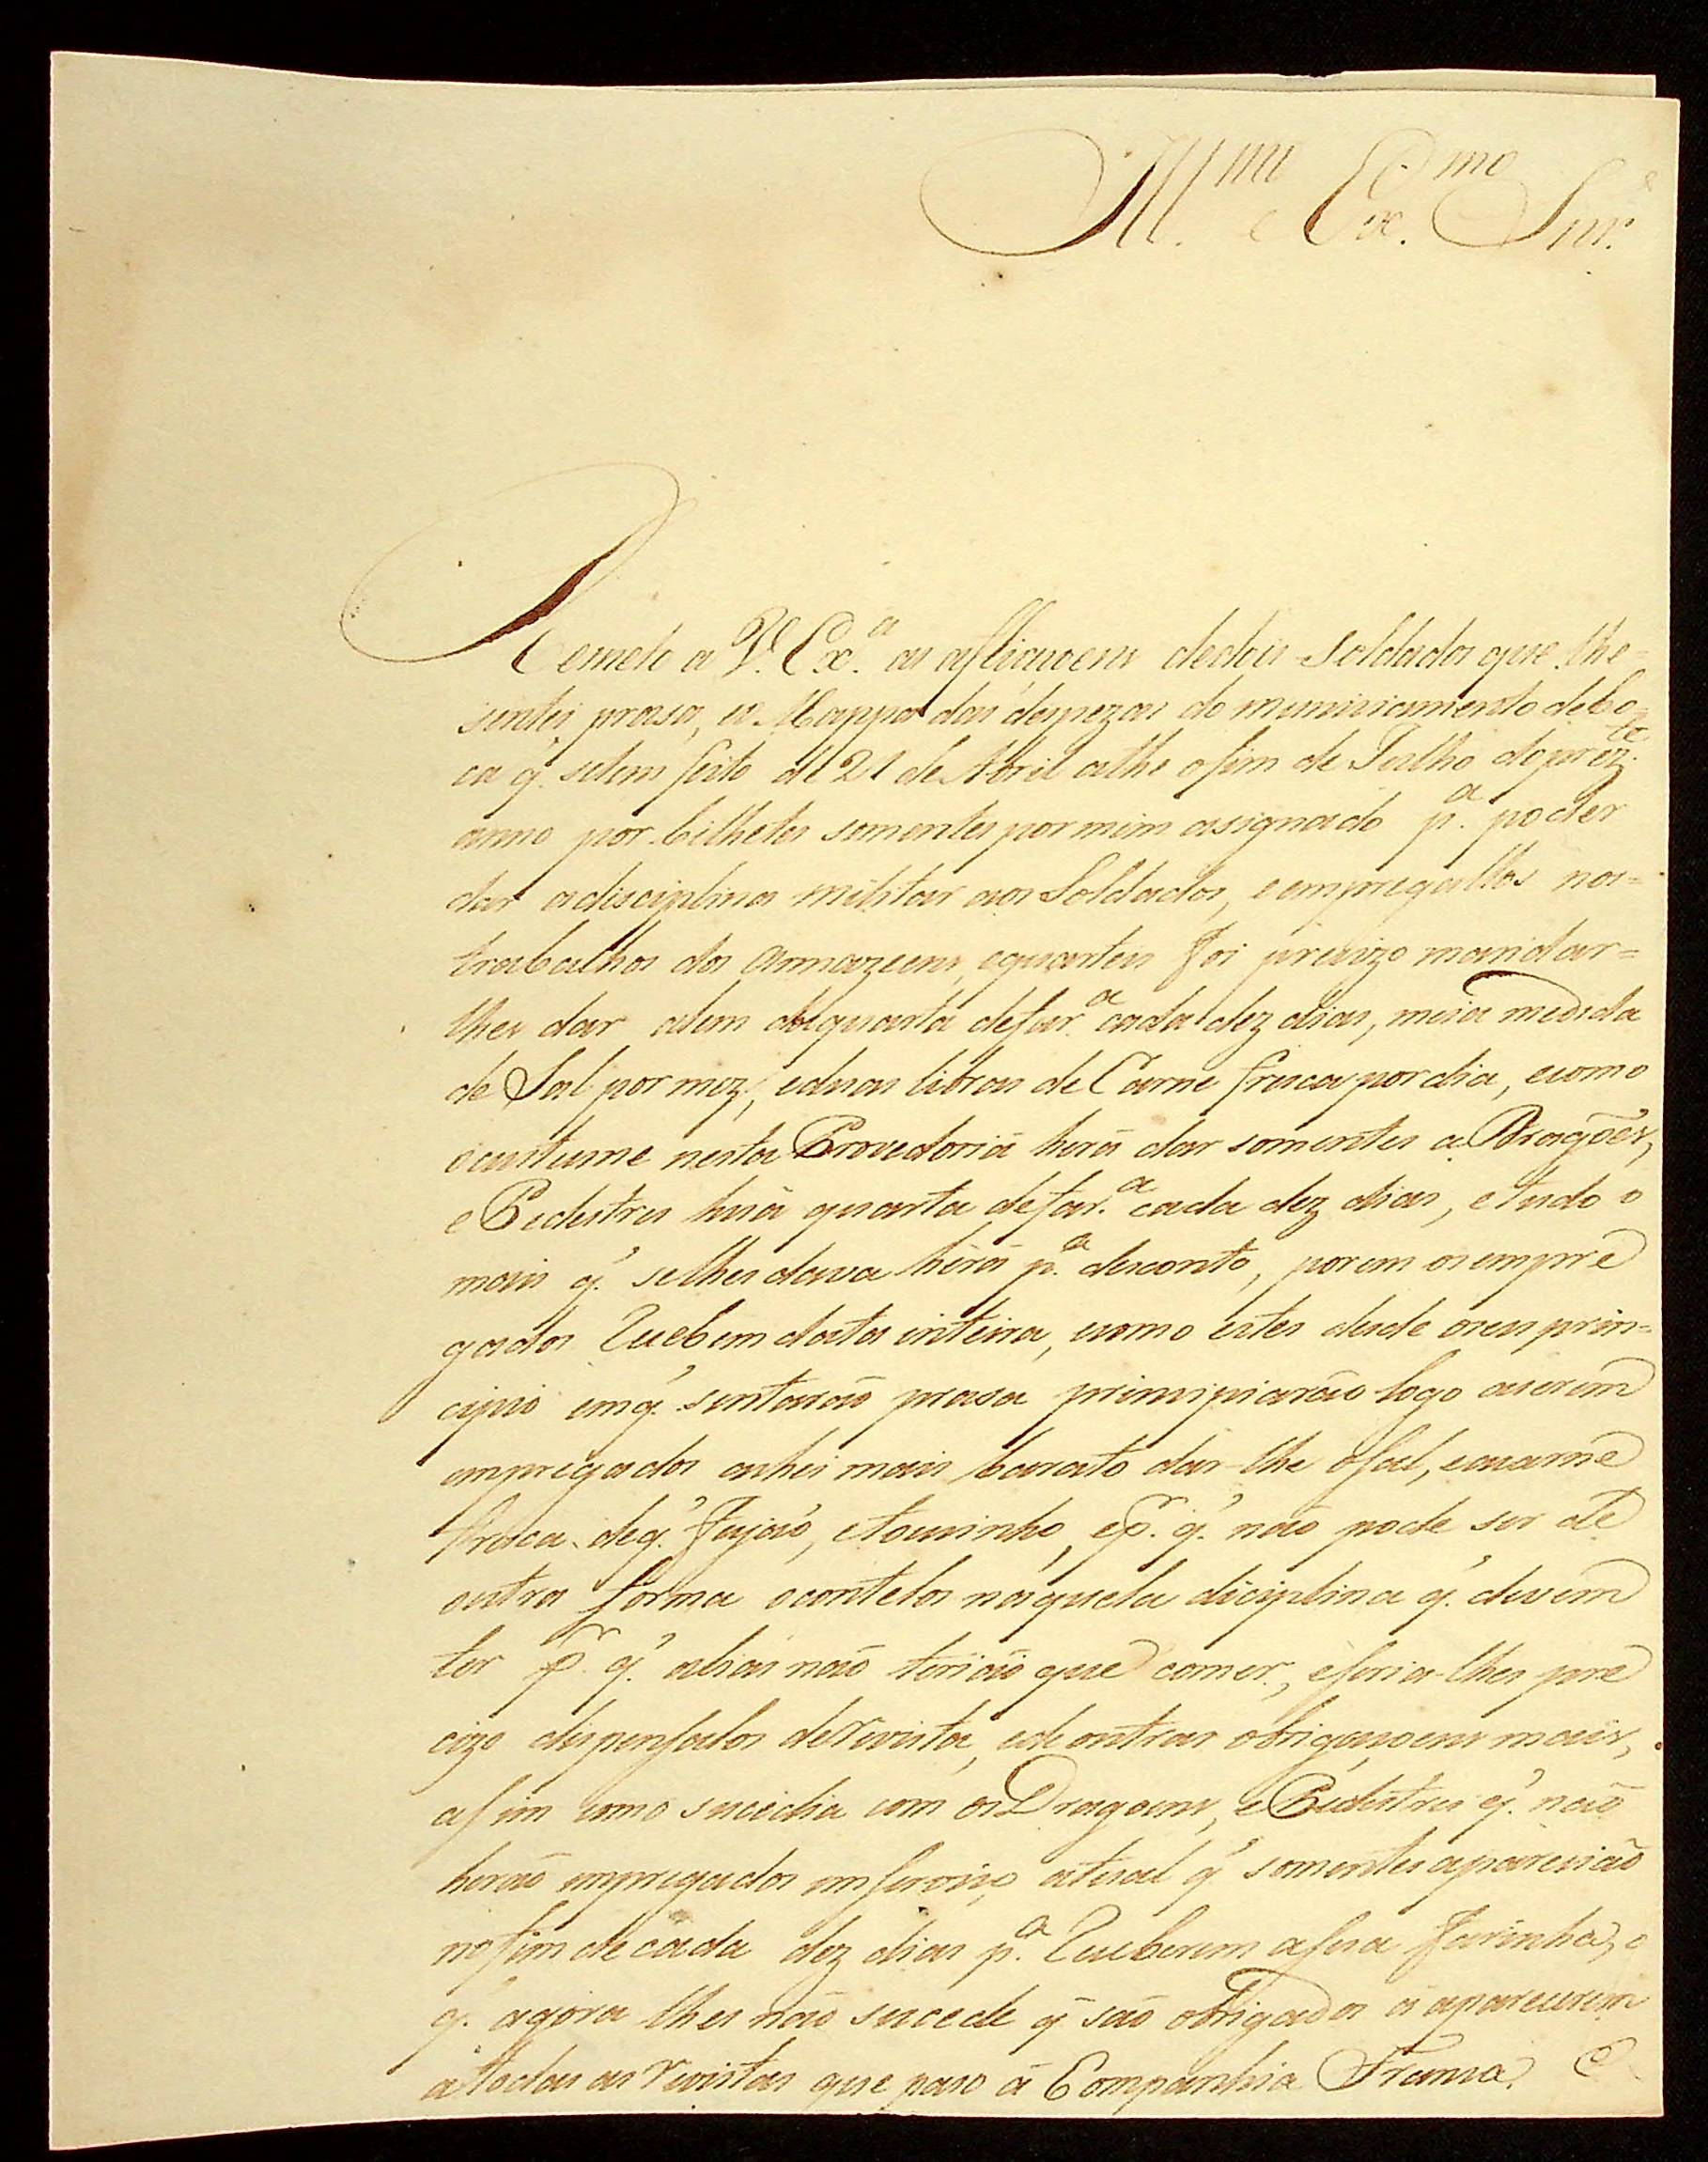 Ill.mo e Ex.mo Snr.
Remeto a V. Ex.a as afliçaoens dedois Soldados que lhe=
sentei prasa, eo Mappa das despezas do municiamento debo=
ca q̃. setem feito de 21 de Abril athe ofim de Julho doprez.te
anno por bilhetes somentes por mim asignado p.a poder
dar adisciplina militar aos Soldados, eempregallos nos=
trabalhos dos Armazeens, equarteis foi precizo mandar=
lhes dar alem daquarta defar.a cada dez dias, meia medida
de Sal por mez, eduas libras de Carne fresca por dia, ecomo
ocustume nesta Provedoria herá dar somentes a Dragões,
e Pedestres huã quarta defar.a cada dez dias, etudo o
mais q̃. selhes dava herá p.a desconto, porem os empre
gados Recebem data inteira, ecomo estes desde oseu prin=
cipio emq̃. sentaraõ prasa principiaraõ logo aserem
empregados achei mais barato dar-lhe osal, eacarne
fresca, deq̃. Fejaõ, etoucinho, ep.r q̃. naõ pode ser de
outra forma ocontelos náquela diciplina q̃. devem
ter p.r q̃. alias naõ teriaõ que comer, eseria-lhes pre
cizo dispensalos deRevista, ede outras obrigaçoens mais,
asim como sucedia com os Dragoens, e Pedestres q̃. naõ
heraõ empregados emserviço atual q̃. somentes apareciaõ
nofim de cada dez dias p.a Receberem asua Farinha, o
q̃. agora lhes naõ sucede q̃ saõ obrigados á aparecerem
atodas as Revistas que paso á Companhia Franca. E